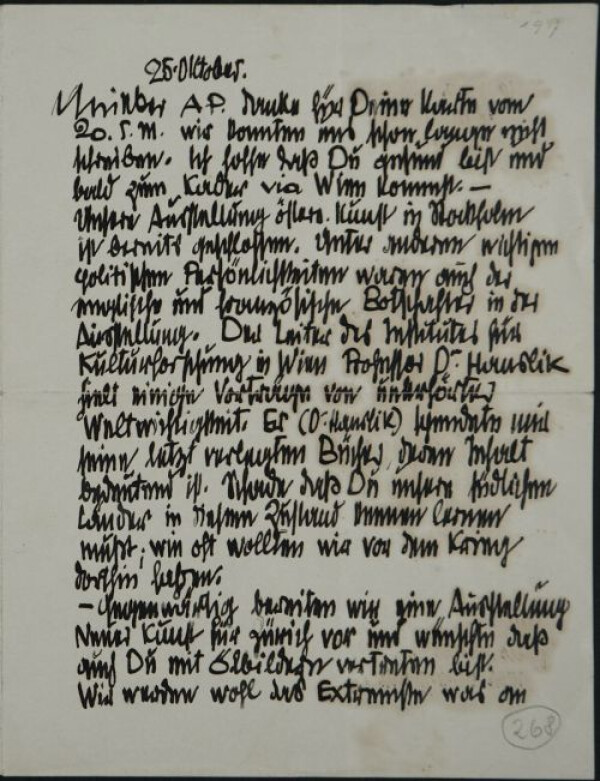 25. Oktober.
Lieber A.P. danke für Deine Karte vom
20. d. M. wir konnten uns schon lange nicht
schreiben. Ich hoffe daß Du gesund bist und
bald zum Kader via Wien kommst. —
Unsere Ausstellung österr. Kunst in Stockholm
ist bereits geschlossen. Unter anderen wichtigen
politischen Persönlichkeiten waren auch der
englische und französische Botschafter in der
Ausstellung. Der Leiter des Institutes für
Kulturforschung in Wien Professor Dr. Hanslik
hielt einige Vorträge von unerhörter
Weltwichtigkeit. Er (Dr. Hanslik) spendete mir
seine letzt verlegten Bücher, deren Inhalt
bedeutend ist. Schade daß Du unsere südlichen
Länder in diesem Zustand kennen lernen
mußt; wie oft wollten wir vor dem Krieg
dorthin gehen.
— Gegenwärtig bereiten wir eine Ausstellung
Neuer Kunst für Zürich vor und wünschte daß
auch Du mit Ölbildern vertreten bist.
Wir werden wohl das Extremste was an
268